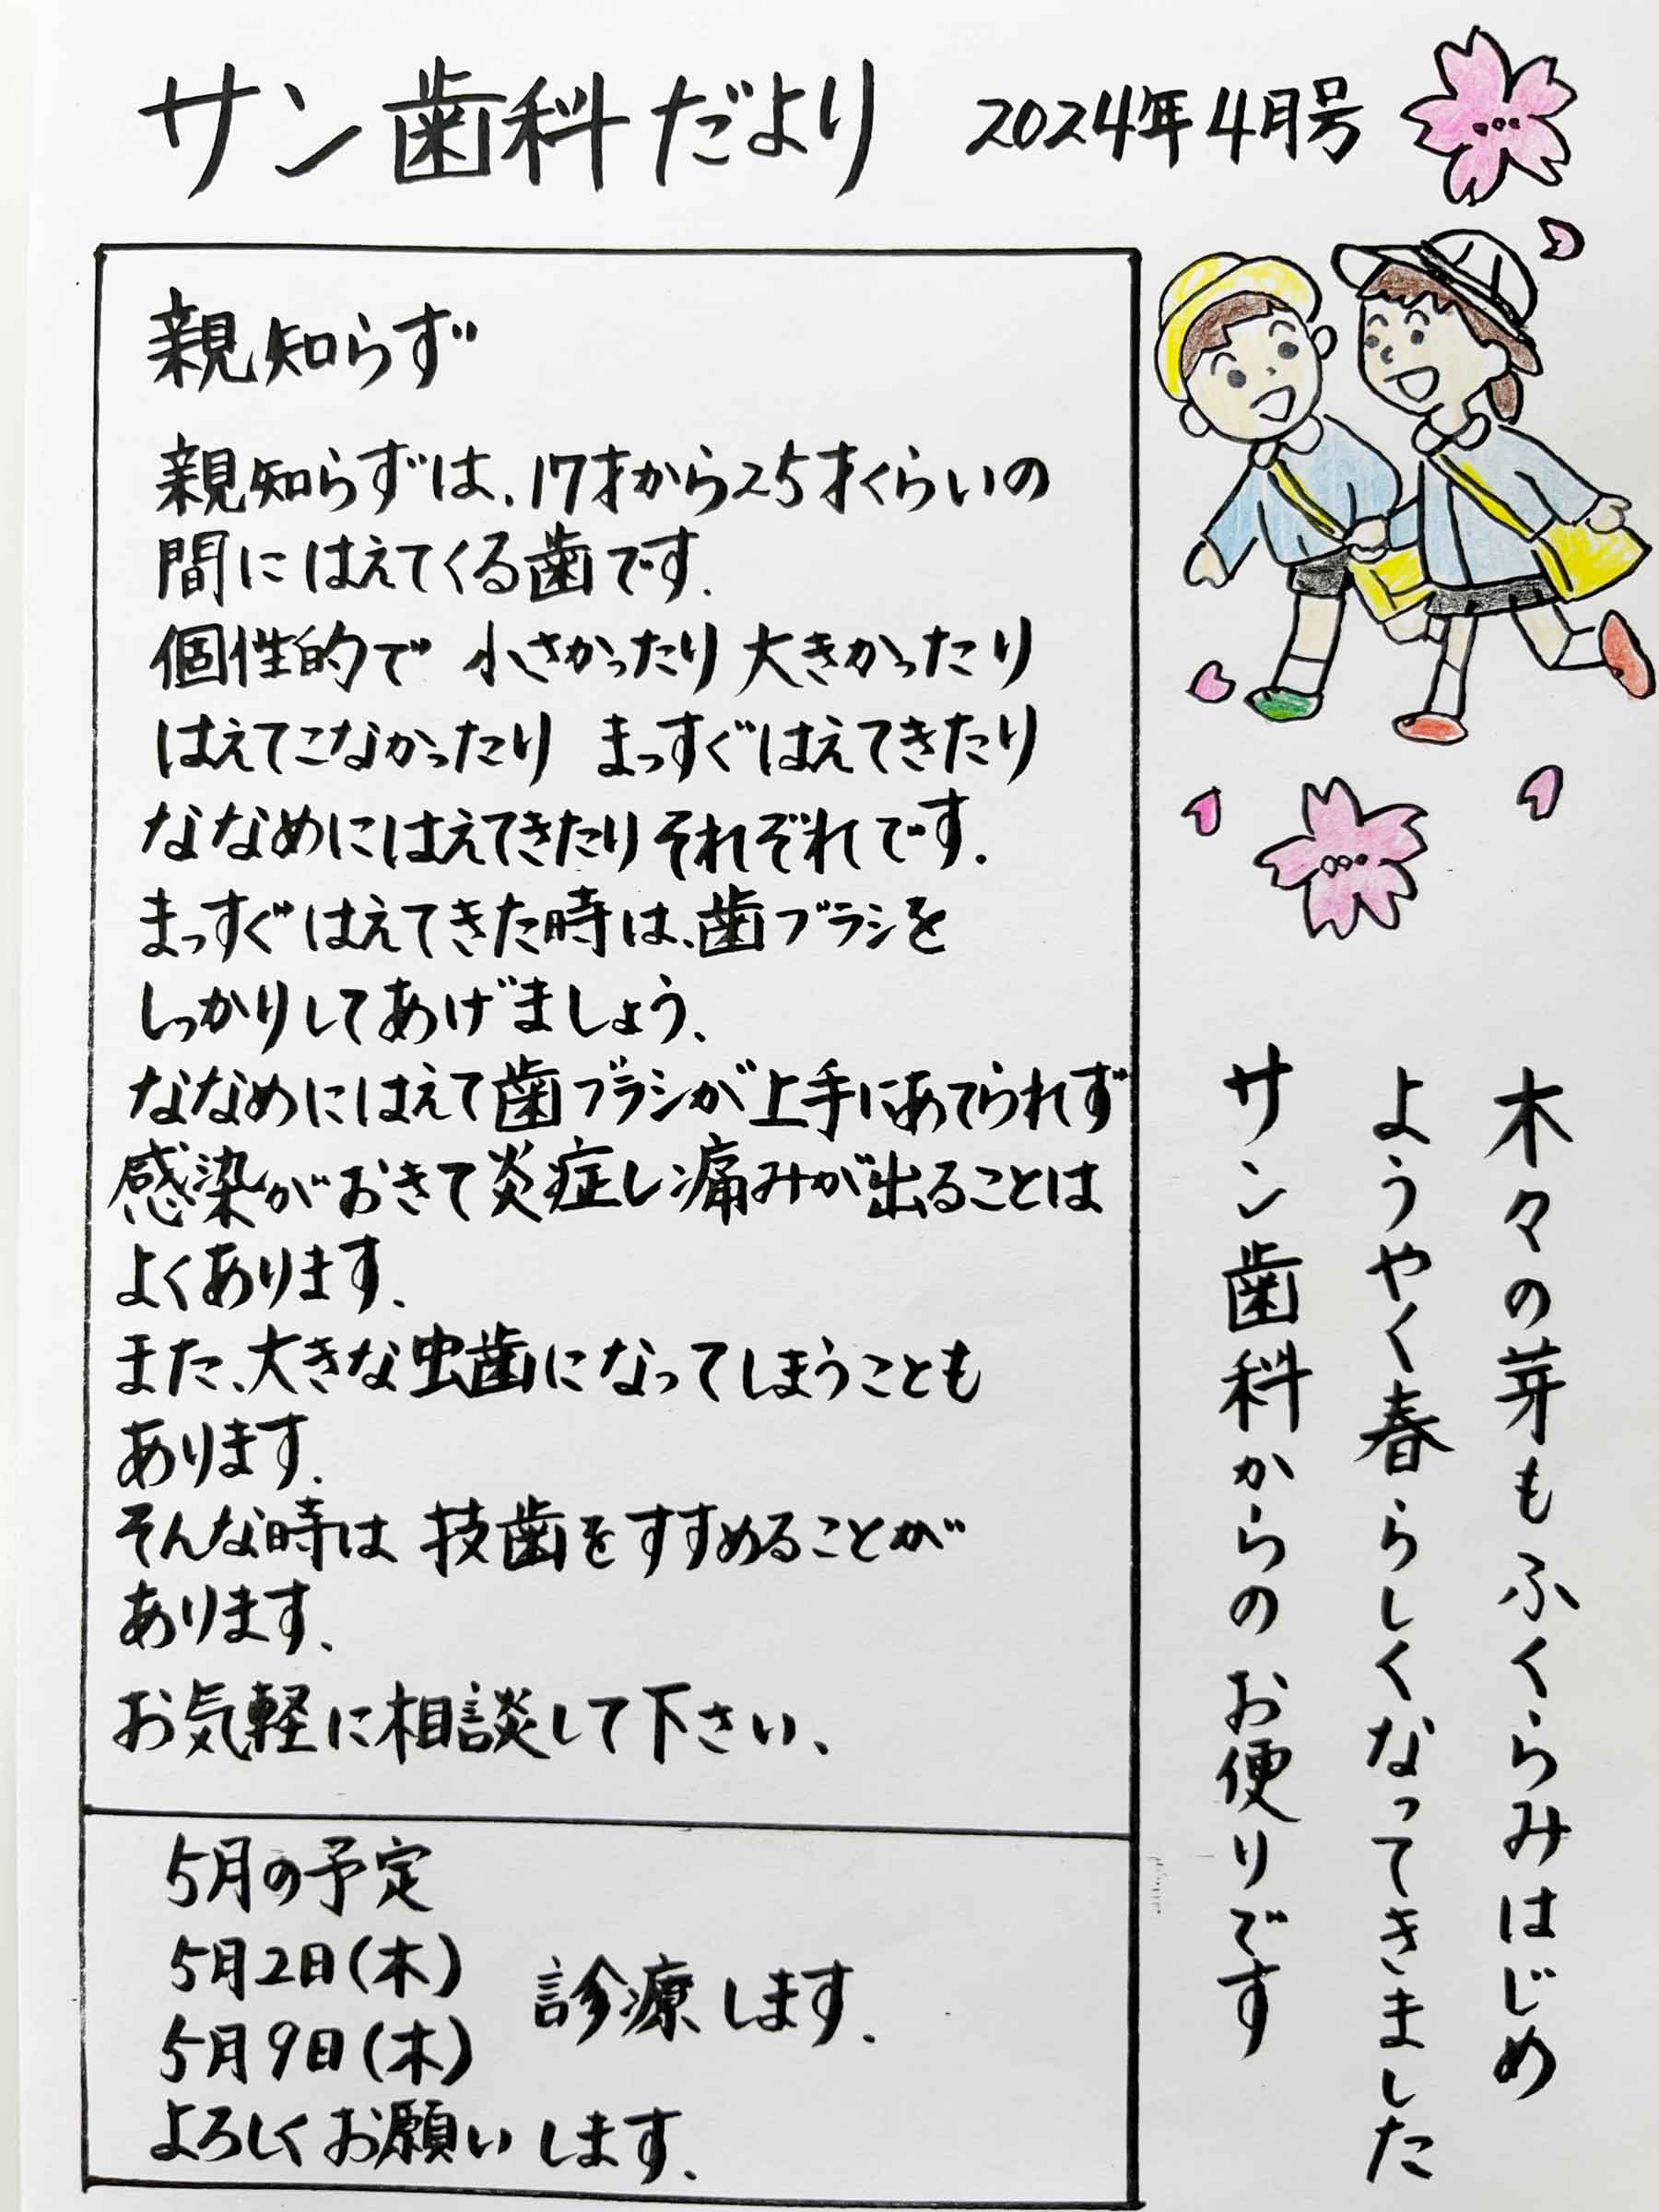 サン歯科だより 2024年4月号
木々の芽もふくらみはじめ
ようやく春らしくなってきました
サン歯科からのお便りです
親知らず
親知らずは、17才から25才くらいの
間にはえてくる歯です。
個性的で 小さかったり 大きかったり
はえてこなかったり まっすぐはえてきたり
ななめにはえてきたりそれぞれです。
まっすぐはえてきた時は、歯ブラシを
しっかりしてあげましょう、
ななめにはえて歯ブラシが上手にあてられず
感染がおきて炎症し痛みが出ることは
よくあります、
また、大きな虫歯になってしまうことも
あります。
そんな時は 技歯をすすめることが
あります、
お気軽に相談して下さい、
5月の予定
5月2日(木)
5月9日(木)
診療します。
よろしくお願いします、